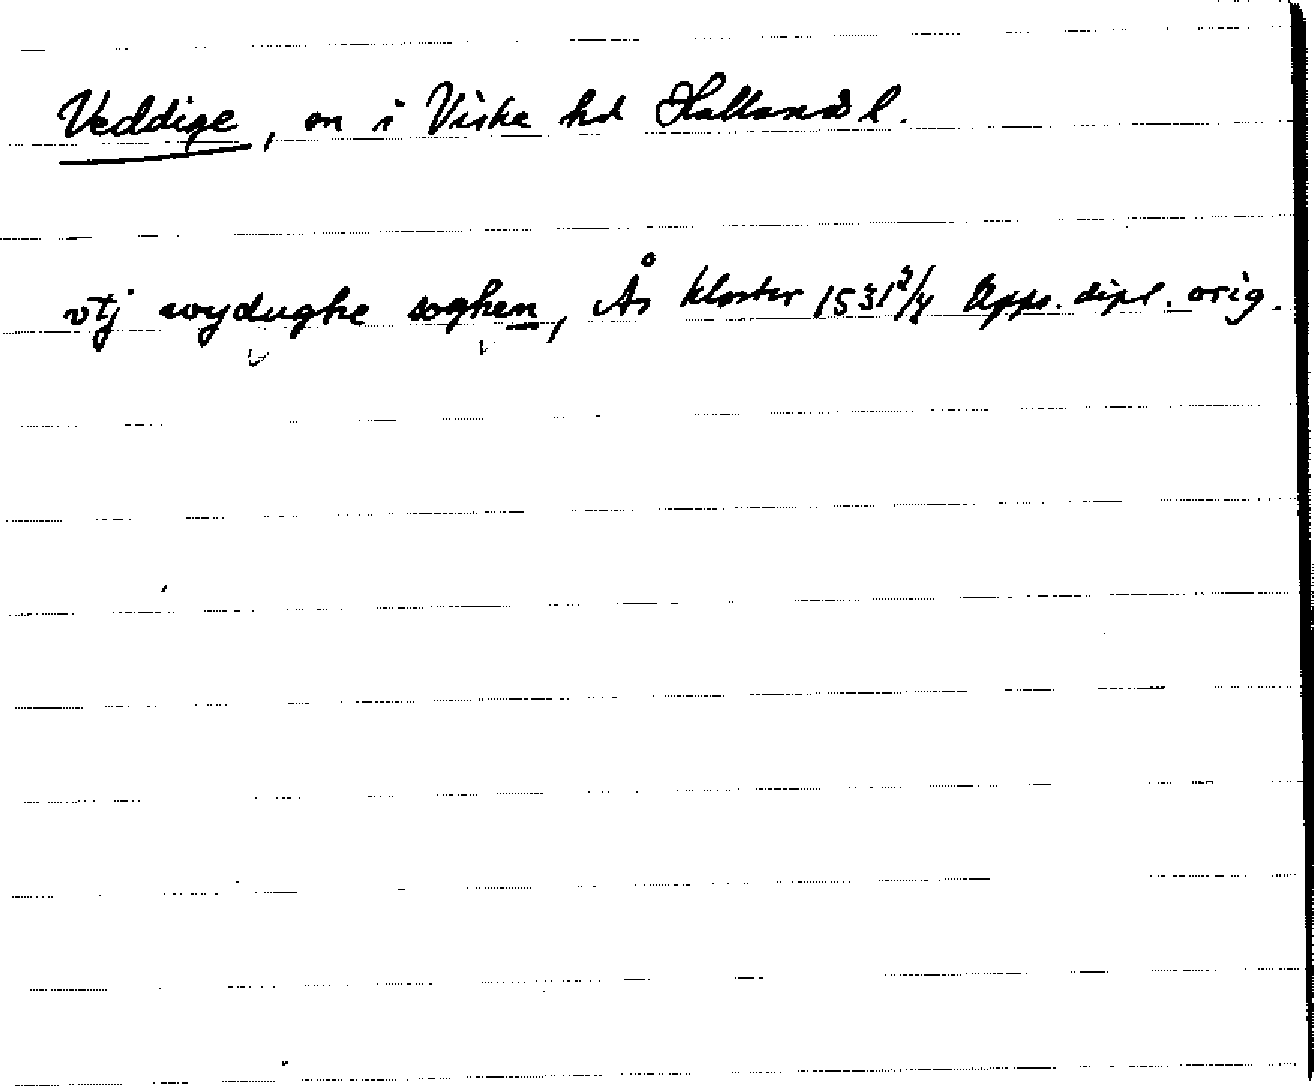 Veddige, sn i Viske hd Hallands l.
vtj wydughe soghen, Ås kloster 1531 2/4 Upps. dipl. orig.